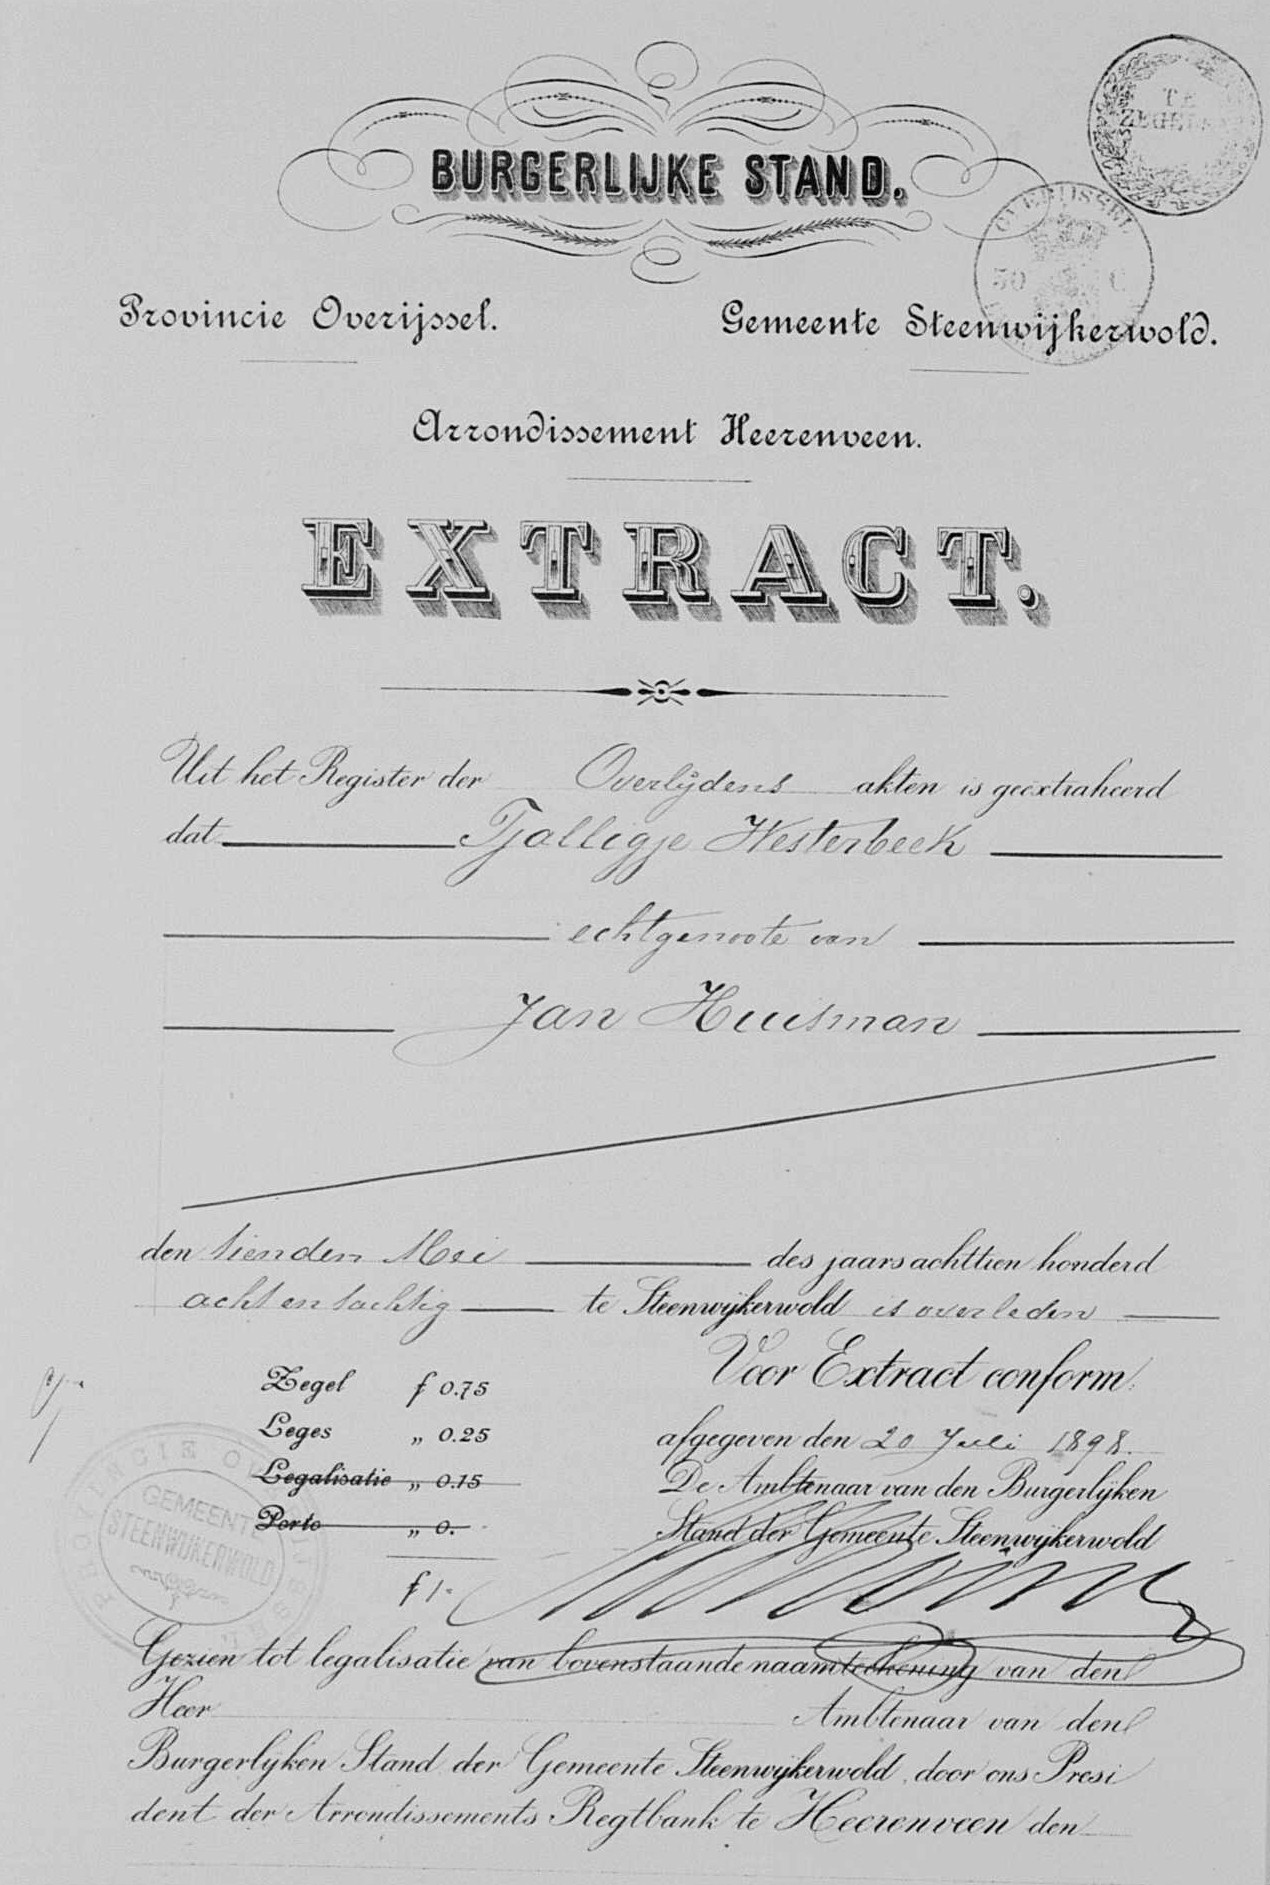 TE
ZEGELEN
BURGERLIJKE STAND.
OVERIJSSEL
50 C
Provincie Overijssel. Gemeente Steenwijkerwold.
Arrondissement Heerenveen.
EXTRACT.
Uit het Register der Overlijdens akten is geëxtraheerd
dat Tjalligje Westerbeek
echtgenoote van
Jan Huisman
den tienden Mei des jaars achttien honderd
acht en tachtig te Steenwijkerwold is overleden
Voor Extract conform.
Zegel f 0.75
Leges „ 0.25
afgegeven den 20 Juli 1898.
Legalisatie „ 0.15
De Ambtenaar van den Burgerlijken
Porto „ 0.
Stand der Gemeente Steenwijkerwold
f 1.-
PROVINCIE OVERIJSSEL
GEMEENTE
STEENWIJKERWOLD
Gezien tot legalisatie van bovenstaande naamteekening van den
Heer Ambtenaar van den
Burgerlijken Stand der Gemeente Steenwijkerwold, door ons Presi
dent der Arrondissements Regtbank te Heerenveen den